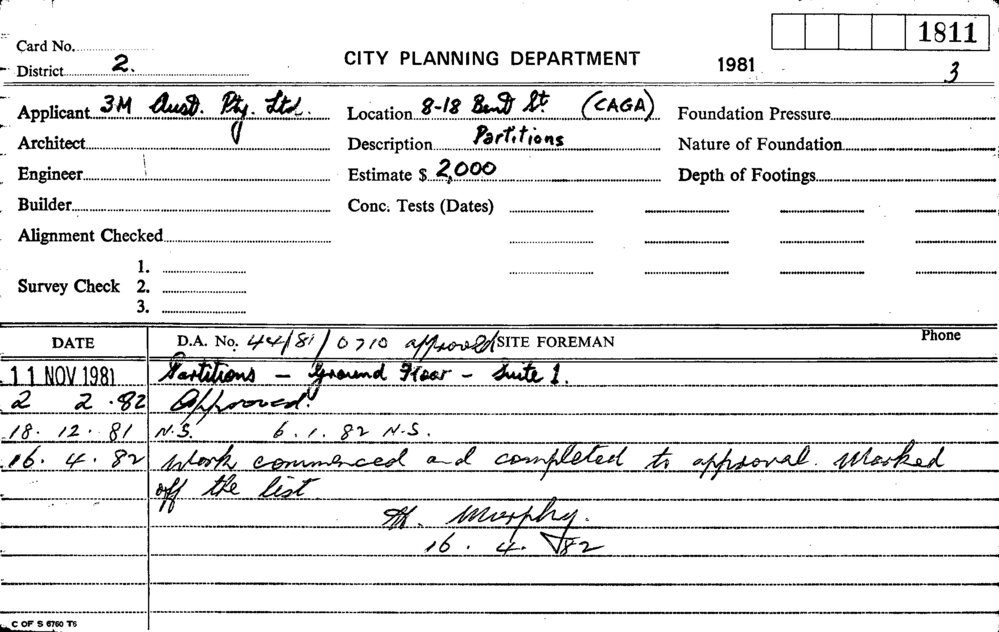 1811
Card No.
District 2. CITY PLANNING DEPARTMENT 1981 3
Applicant 3M Aust. Pty. Ltd. Location 8-18 Bent St. (CAGA) Foundation Pressure
Architect Description Partitions Nature of Foundation
Engineer Estimate $ 2,000 Depth of Footings
Builder Conc. Tests (Dates)
Alignment Checked
1.
Survey Check 2.
3.
DATE D.A. No. 44/81/0710 approved SITE FOREMAN Phone
11 NOV 1981 Partitions - Ground Floor - Suite 1.
2 2.82 Approved!
18.12.81 N.S. 6.1.82 N.S.
16.4.82 Work commenced and completed to approval. Marked
off the list.
M. Murphy.
16.4.82
C OF S 6760 T6